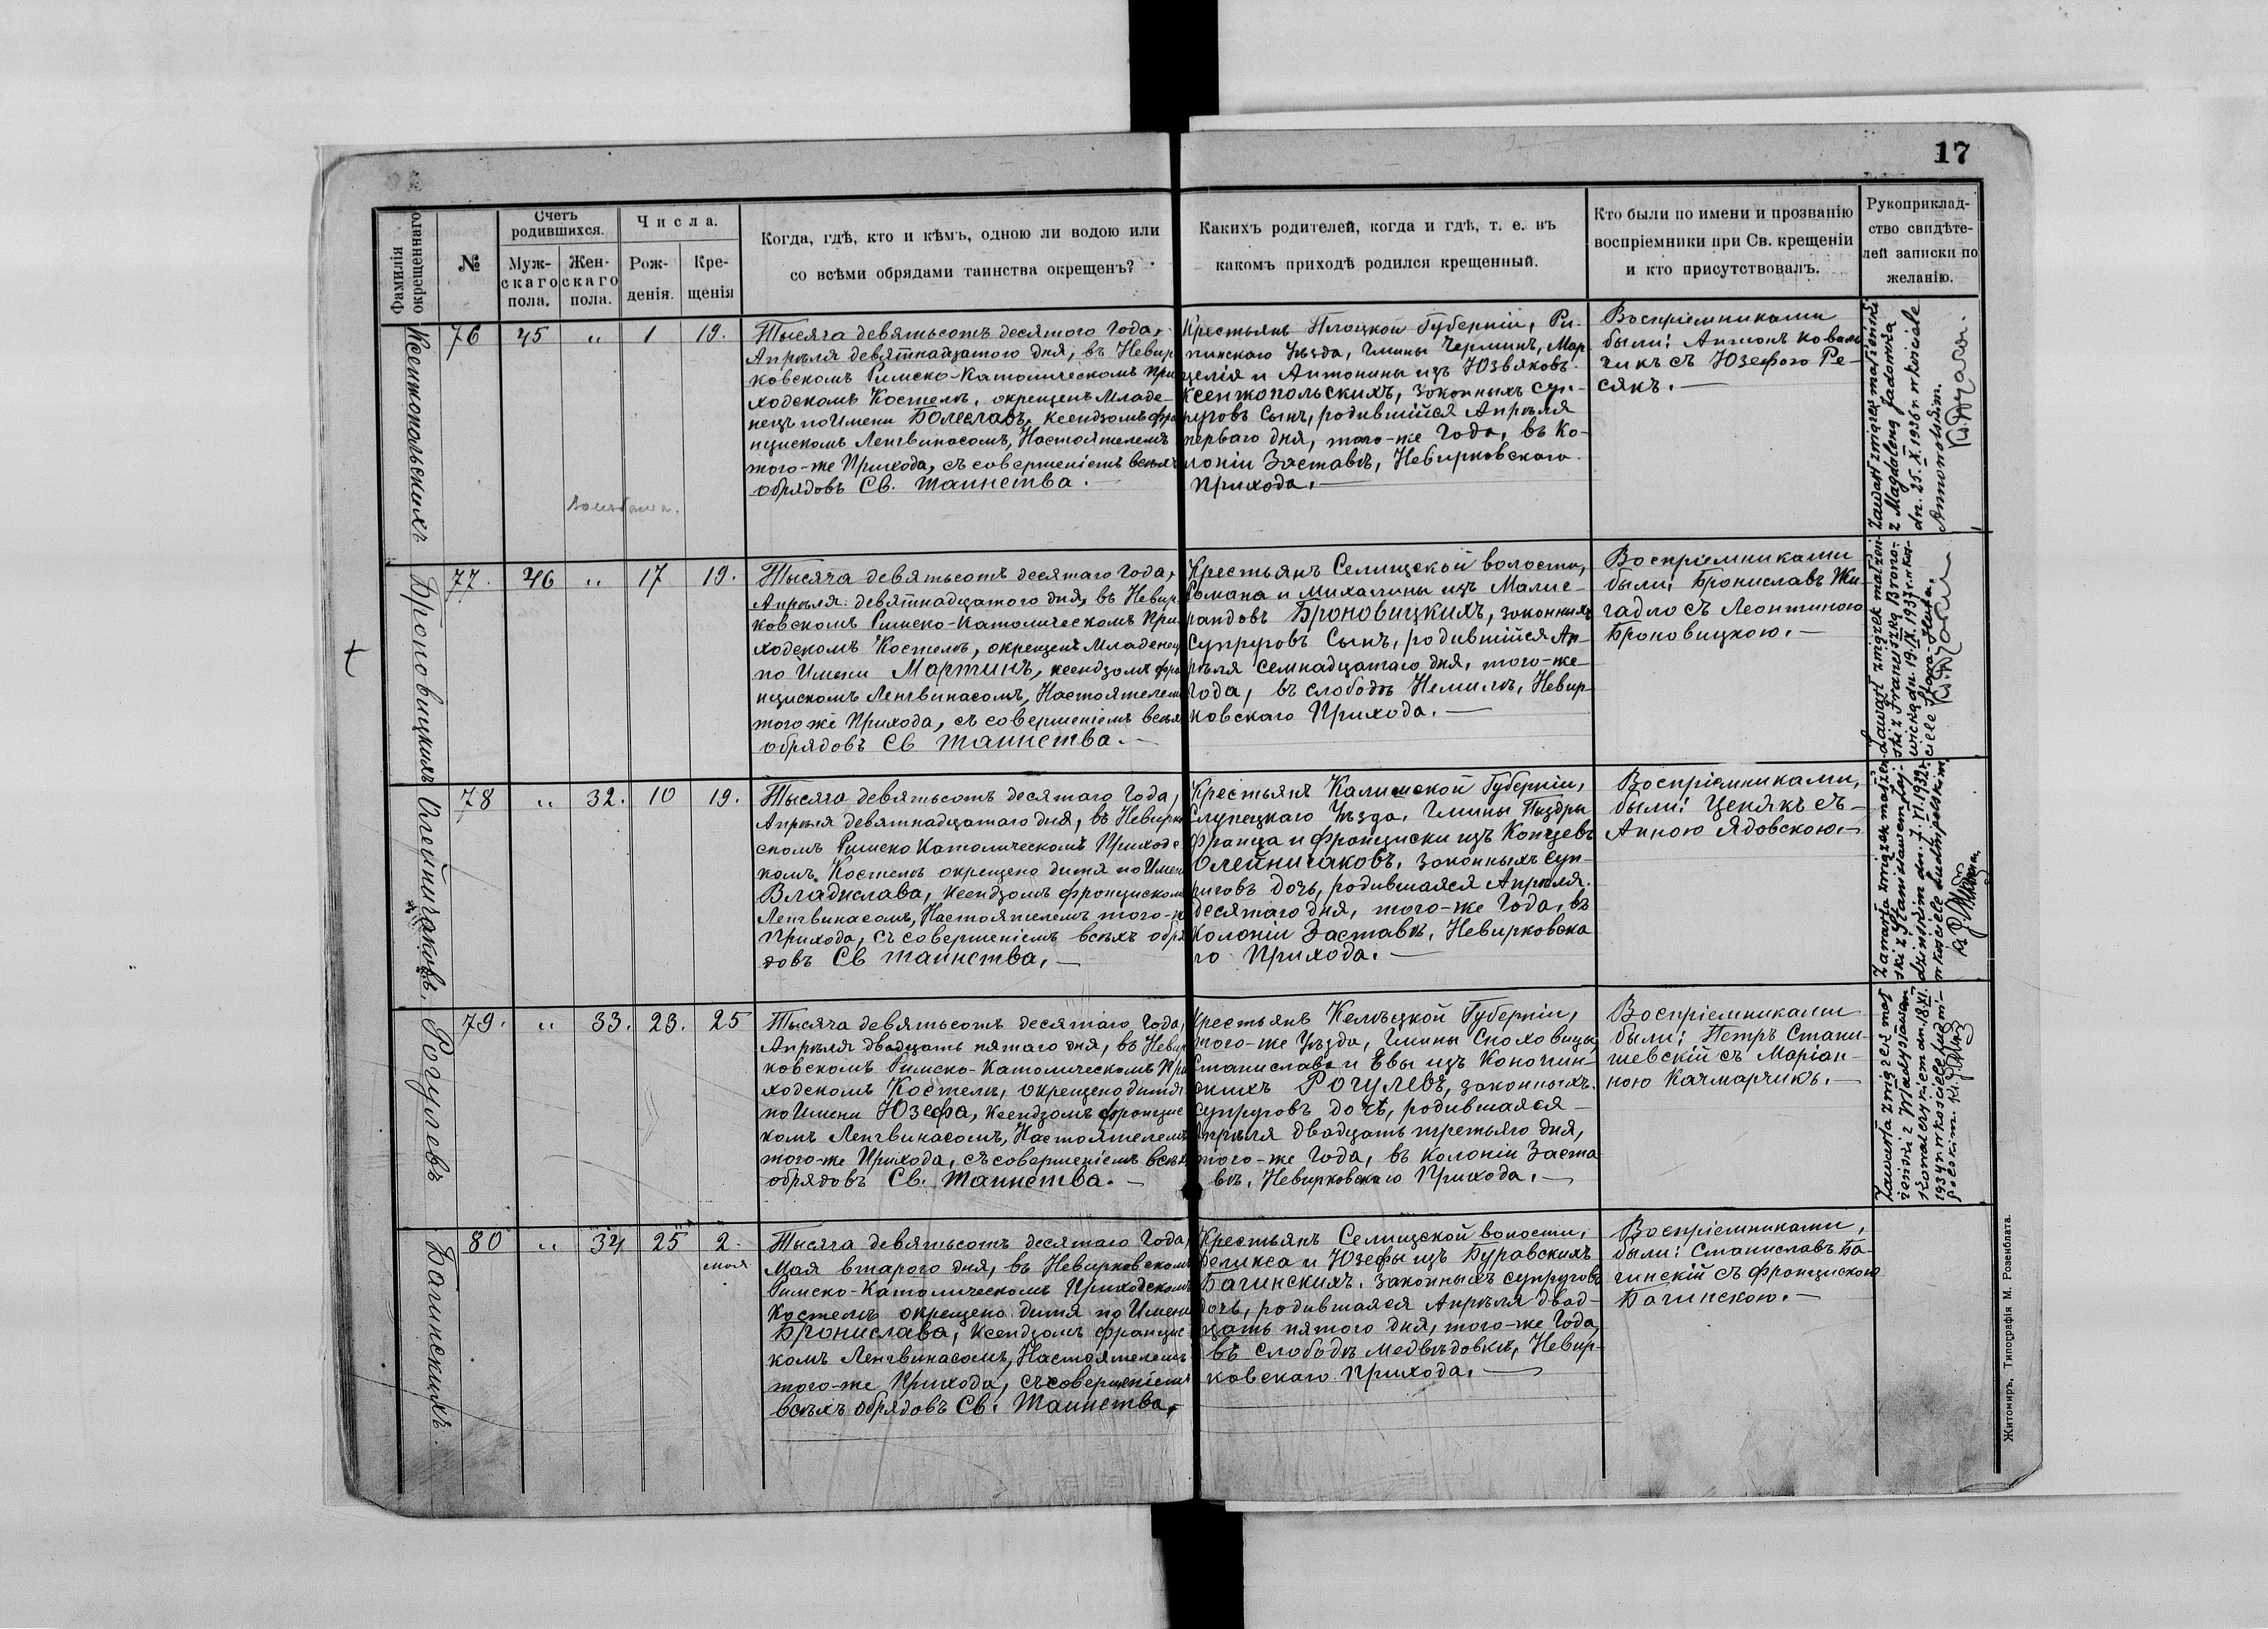 17
Фамилія окрещеннаго
№
Счетъ родившихся.
Муж-скаго пола.
Жен-скаго пола.
Числа.
Рож-денія.
Кре-щенія
Когда, гдѣ, кто и кѣмъ, одною ли водою или
со всѣми обрядами таинства окрещенъ?
Какихъ родителей, когда и гдѣ, т. е. въ
какомъ приходѣ родился крещенный.
Кто были по имени и прозванію
воспріемники при Св. крещеніи
и кто присутствовалъ.
Рукоприклад-
ство свидѣте-
лей записки по
желанію.
Ксенткопольскихъ
76 45 " 1 19.
Тысяча девятьсотъ десятого Года,
Апрѣля девятнадцатого дня, въ Невир
ковскомъ Римско-Католическомъ При
ходскомъ Костелѣ, окрещенъ Младе-
нецъ по Имени Болеславъ, Ксендзомъ Фра
нцискомъ Ленгвинасомъ, Настоятелемъ
того-же Прихода, съ совершеніемъ всѣхъ
обрядовъ Св. Таинства.
Крестьянъ Плоцкой Губерніи, Ри-
пинскаго Уѣзда, Гмины Черминъ, Мар
целія и Антонины изъ Юзвяковъ
Ксенткопольскихъ, законныхъ суп-
руговъ Сынъ, родившійся Апрѣля
перваго дня, того-же Года, въ Ко-
лоніи Заставѣ, Невирковскаго
Прихода.
Воспріемниками
были: Антонъ Коваль
чикъ съ Юзефою Ре-
сякъ.
Zawarł związek małżeński
z Magdaleną Jadowską
dn. 25.X.1936 r. w kościele
Antonolskim.
Броновицкихъ
77. 46 " 17 19.
Тысяча девятьсотъ десятаго Года,
Апрѣля девятнадцатого дня, въ Невир
ковскомъ Римско-Католическомъ При
ходскомъ Костелѣ, окрещенъ Младенец
по Имени Мартинъ, Ксендзомъ Фра
нцискомъ Ленгвинасомъ, Настоятелем
того же Прихода, съ совершеніемъ всѣх
обрядовъ Св Таинства.
Крестьянъ Селищской волости,
Романа и Михалины изъ Малис-
рандовъ Броновицкихъ, законныхъ
Супруговъ Сынъ, родившійся Ап-
рѣля семнадцатаго дня, того-же
Года, въ слободѣ Немилѣ, Невир-
ковскаго Прихода.
Воспріемниками
были: Брониславъ Жи-
гадло съ Леонтиною
Броновицкою.
Zawarł związek małżeń-
ski z Franciszką Brono-
wicką dn. 19.IX.1937 r. w koś-
ciele Stara-Huta.
Олейничаковъ.
78 " 32. 10 19.
Тысяча девятьсотъ десятаго Года,
Апрѣля девятнадцатаго дня, въ Невирко
скомъ Римско Католическомъ Приходс
комъ Костелѣ окрещено дитя по Имен
Владислава, Ксендзомъ Францискомъ
Ленгвинасомъ, Настоятелемъ того-
Прихода, съ совершеніемъ всѣхъ обря
довъ Св Таинства.
Крестьянъ Калишской Губерніи,
Слупецкаго Уѣзда, Гмины Пыздры
Франца и Франциски изъ Копцевъ
Олейничаковъ, законныхъ суп-
руговъ дочь, родившаяся Апрѣля
десятаго дня, того-же Года, въ
Колоніи Заставѣ, Невирковска
го Прихода.
Воспріемниками,
были: Ценякъ съ
Анною Ядовскою.
Zawarła związek małżeń
ski z Stanisławem
dn. 7.VI.1932 r.
w kościele Ludwipolskim
Рогулевъ
79. " 33. 23. 25
Тысяча девятьсотъ десятаго Года,
Апрѣля двадцать пятаго дня, въ Невир
ковскомъ Римско-Католическомъ При
ходскомъ Костелѣ, окрещено дитя
по Имени Юзефа, Ксендзомъ Францис
комъ Ленгвинасомъ, Настоятелемъ
того-же Прихода, съ совершеніемъ всѣх
обрядовъ Св. Таинства.
Крестьянъ Келѣцкой Губерніи,
того-же Уѣзда, Гмины Сноховицы,
Станислава и Евы изъ Конопин-
скихъ Рогулевъ, законныхъ
Супруговъ дочь, родившаяся
Апрѣля двадцать третьяго дня,
того-же Года, въ колоніи Заста
вѣ, Невирковскаго Прихода.
Воспріемниками
были: Петръ Стани-
шевскій съ Маріан-
ною Качмарчикъ.
Zawarła związek mał
żeński z Władysławem
Konarzyniem dn. 18.XI.
193 r. w kościele Ludwi-
polskim.
Багинскихъ.
80 " 34 25 2. мая
Тысяча девятьсотъ десятаго Года,
Мая втораго дня, въ Невирковскомъ
Римско-Католическомъ Приходскомъ
Костелѣ окрещено дитя по Имени
Бронислава, Ксендзомъ Францис
комъ Ленгвинасомъ, Настоятелемъ
того-же Прихода, съ совершеніемъ
всѣхъ обрядовъ Св. Таинства.
Крестьянъ Селищской волости,
Феликса и Юзефы изъ Буравскихъ
Багинскихъ, законныхъ супруговъ
дочь, родившаяся Апрѣля двад-
цать пятого дня, того-же Года,
въ Слободѣ Медвѣдовкѣ, Невир-
ковскаго Прихода.
Воспріемниками,
были: Станиславъ Ба-
гинскій съ Францискою
Багинскою.
Житомиръ, Типографія М. Розенблата.